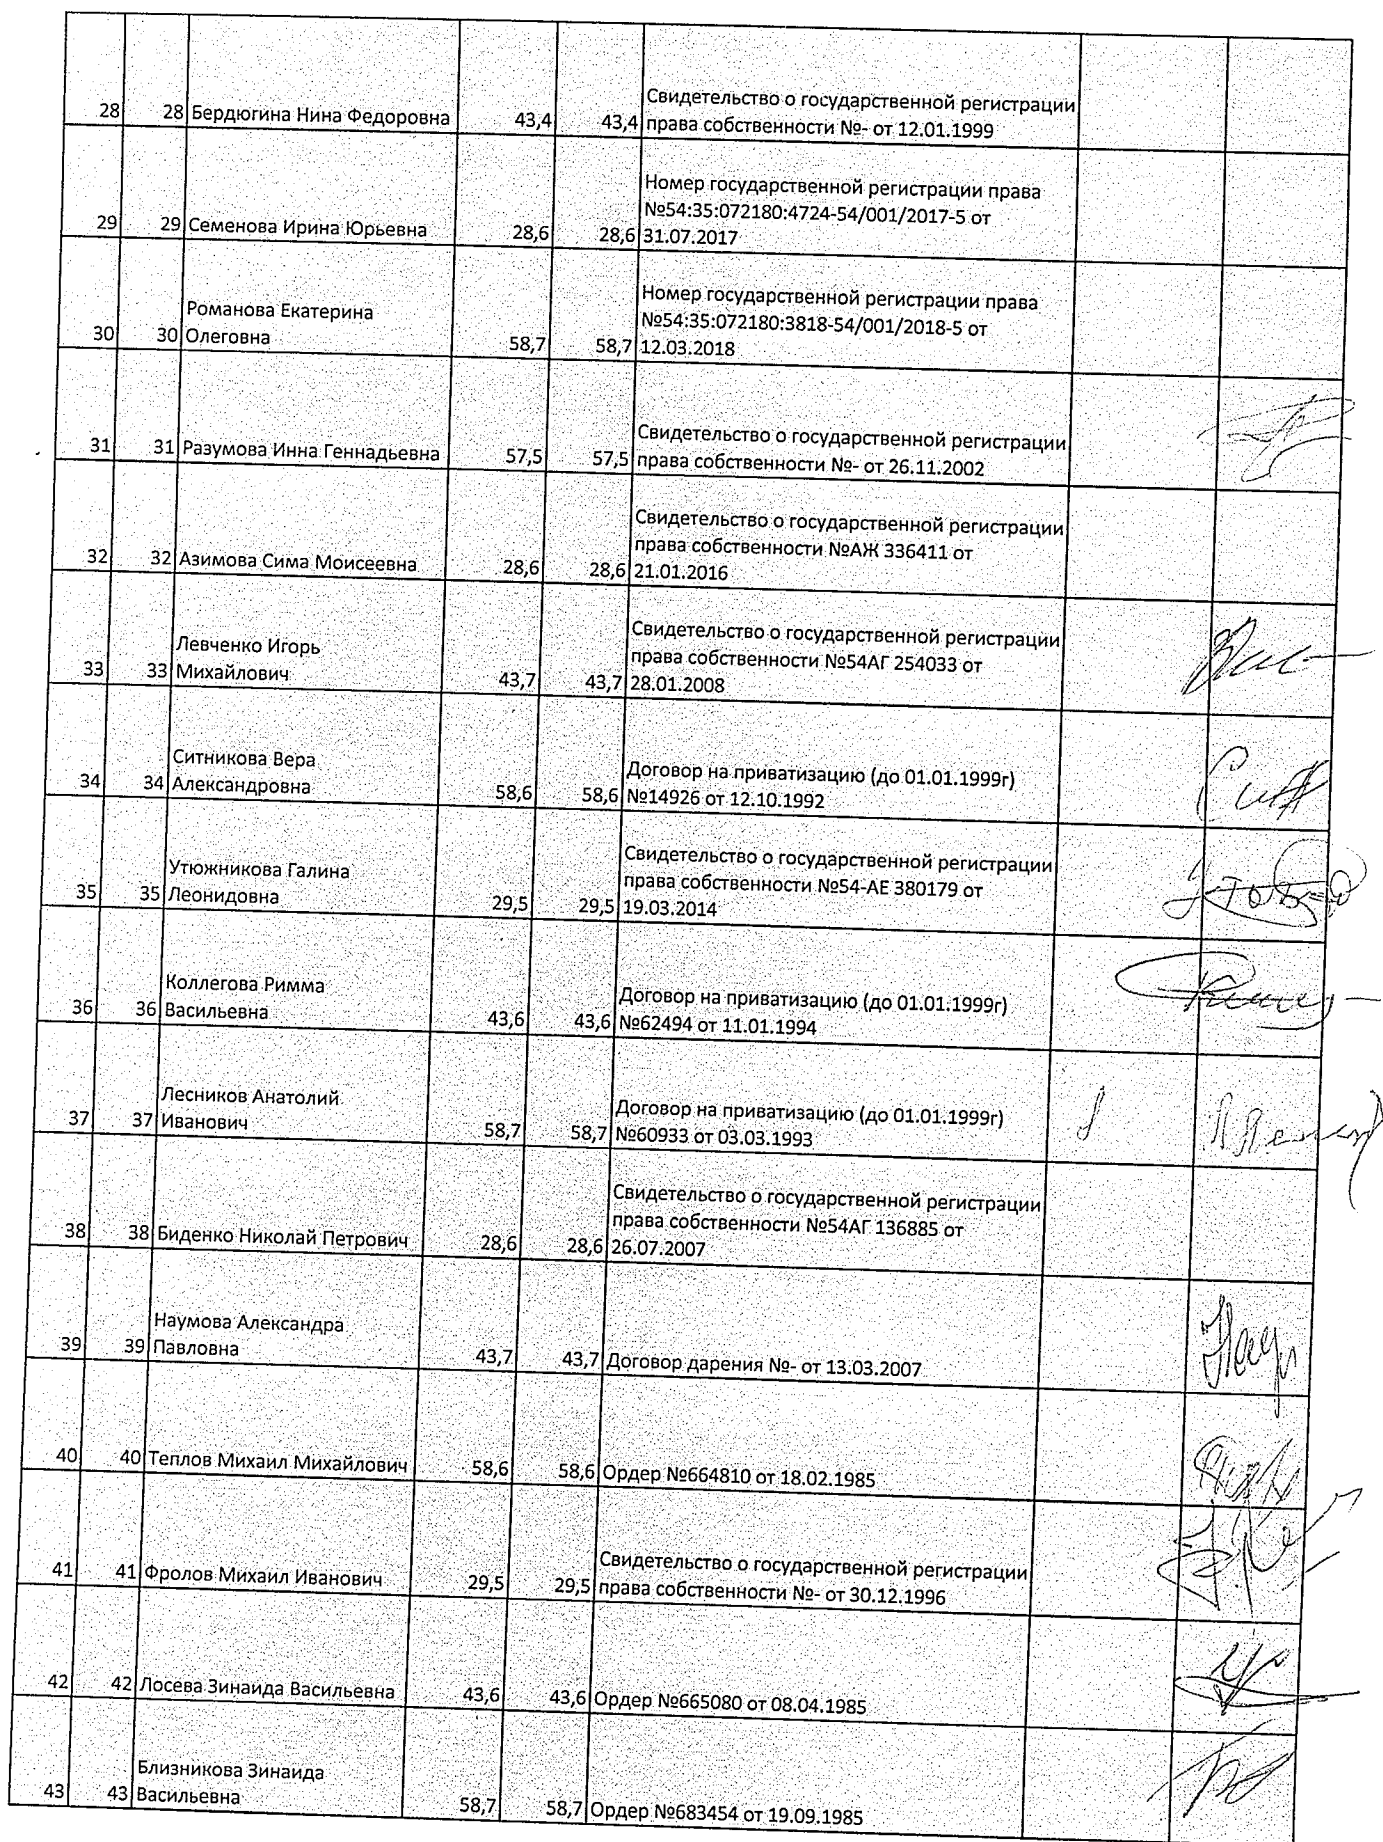 28 28 Бердюгина Нина Федоровна 43,4 43,4 Свидетельство о государственной регистрации
права собственности №- от 12.01.1999
29 29 Семенова Ирина Юрьевна 28,6 28,6 Номер государственной регистрации права
№54:35:072180:4724-54/001/2017-5 от
31.07.2017
30 30 Романова Екатерина
Олеговна 58,7 58,7 Номер государственной регистрации права
№54:35:072180:3818-54/001/2018-5 от
12.03.2018
31 31 Разумова Инна Геннадьевна 57,5 57,5 Свидетельство о государственной регистрации
права собственности №- от 26.11.2002
32 32 Азимова Сима Моисеевна 28,6 28,6 Свидетельство о государственной регистрации
права собственности №АЖ 336411 от
21.01.2016
33 33 Левченко Игорь
Михайлович 43,7 43,7 Свидетельство о государственной регистрации
права собственности №54АГ 254033 от
28.01.2008
34 34 Ситникова Вера
Александровна 58,6 58,6 Договор на приватизацию (до 01.01.1999г)
№14926 от 12.10.1992
35 35 Утюжникова Галина
Леонидовна 29,5 29,5 Свидетельство о государственной регистрации
права собственности №54-АЕ 380179 от
19.03.2014
36 36 Коллегова Римма
Васильевна 43,6 43,6 Договор на приватизацию (до 01.01.1999г)
№62494 от 11.01.1994
37 37 Лесников Анатолий
Иванович 58,7 58,7 Договор на приватизацию (до 01.01.1999г)
№60933 от 03.03.1993
38 38 Биденко Николай Петрович 28,6 28,6 Свидетельство о государственной регистрации
права собственности №54АГ 136885 от
26.07.2007
39 39 Наумова Александра
Павловна 43,7 43,7 Договор дарения №- от 13.03.2007
40 40 Теплов Михаил Михайлович 58,6 58,6 Ордер №664810 от 18.02.1985
41 41 Фролов Михаил Иванович 29,5 29,5 Свидетельство о государственной регистрации
права собственности №- от 30.12.1996
42 42 Лосева Зинаида Васильевна 43,6 43,6 Ордер №665080 от 08.04.1985
43 43 Близникова Зинаида
Васильевна 58,7 58,7 Ордер №683454 от 19.09.1985